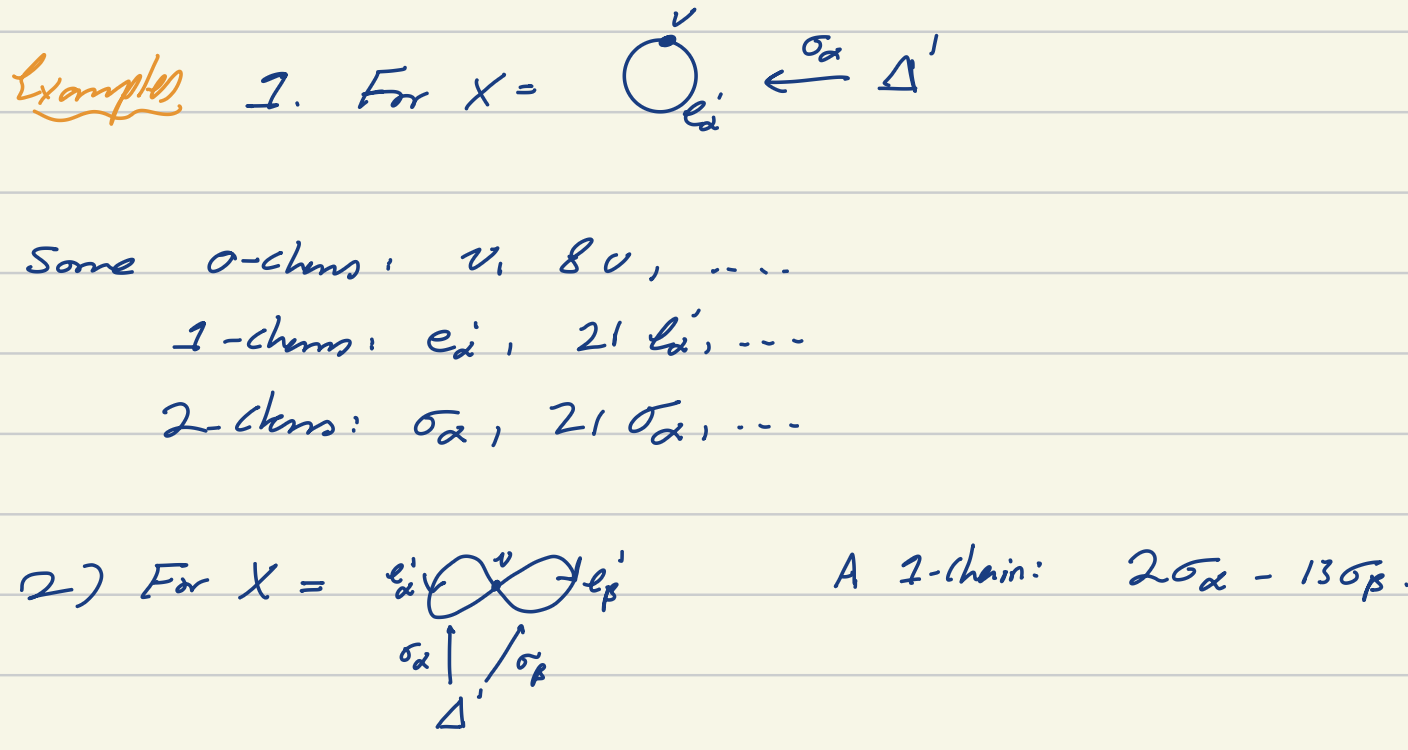 Examples 1. For X = v e_α^1 ← σ_α Δ^1
Some 0-chains: v, 8v, ....
1-chains: e_α^1, 21 e_α^1, ...
2-chains: σ_α, 21 σ_α, ...
2) For X = e_α^1 v e_β^1 A 1-chain: 2σ_α - 13σ_β.
σ_α σ_β
Δ^1